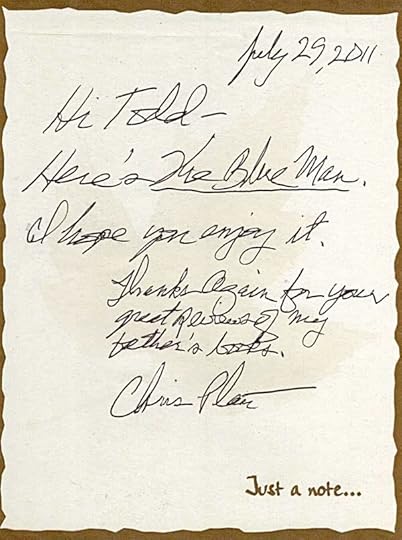 July 29, 2011
Hi Todd –
Here's The Blue Man.
I hope you enjoy it.
Thanks Again for your
great Reviews of my
father's books.
Chris Platt
Just a note...